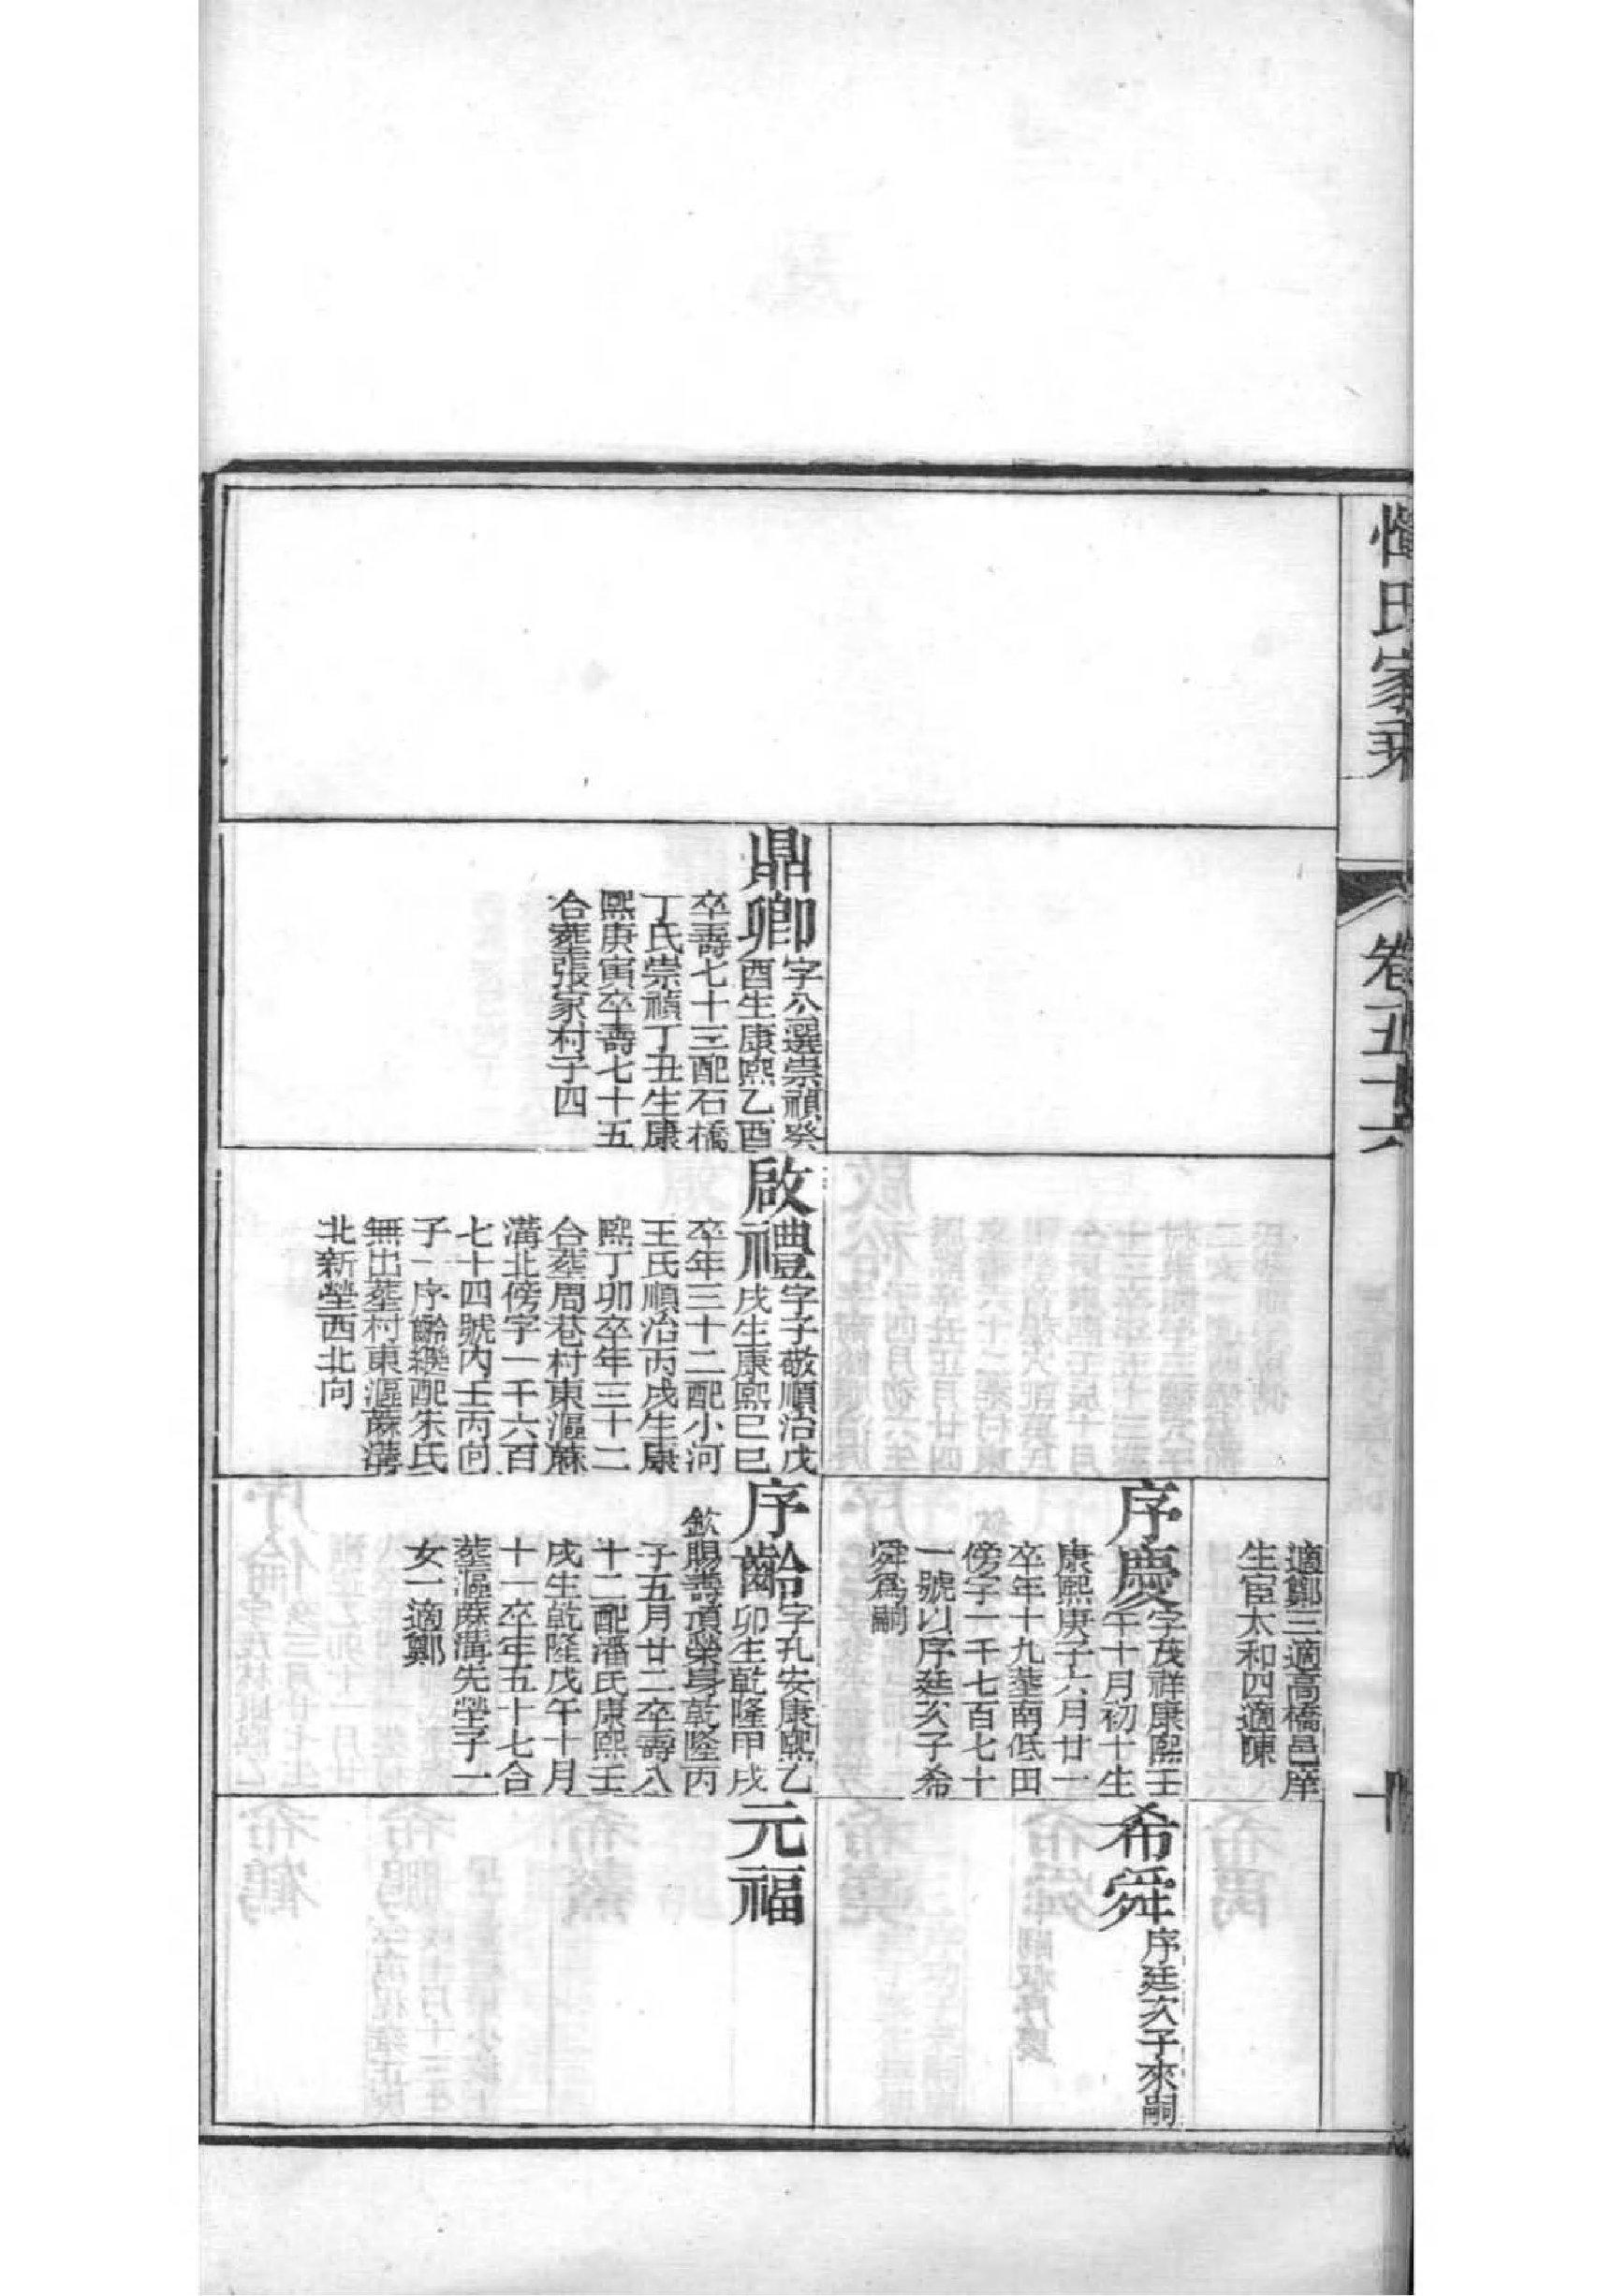 惲氏家乘
卷五十六
鼎卿
字公選崇禎癸
酉生康熙乙酉
卒壽七十三配石橋
丁氏崇禎丁丑生康
熙庚寅卒壽七十五
合塟張家村子四
啟禮
字子敬順治戊
戌生康熙己巳
卒年三十二配小河
王氏順治丙戌生康
熙丁卯卒年三十二
合塟周巷村東漚蔴
溝北傍字一千六百
七十四號內壬丙向
子一序齡繼配朱氏
無出塟村東漚蔴溝
北新塋西北向
適鄭三適高橋邑庠
生宦太和四適陳
序慶
字茂祥康熙壬
午十月初十生
康熙庚子六月廿一
卒年十九塟南低田
傍字一千七百七十
一號以序廷次子希
舜為嗣
序齡
字孔安康熙乙
卯生乾隆甲戌
欽賜壽頂榮身乾隆丙
子五月廿二卒壽八
十二配潘氏康熙壬
戌生乾隆戊午十月
十一卒年五十七合
塟漚蔴溝先塋子一
女一適鄭
希舜
序廷次子來嗣
元福